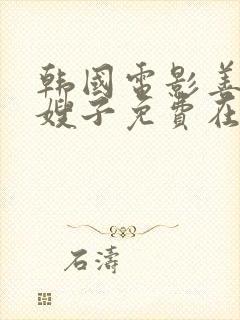 韩國電影善
嫂子免費在
石濤